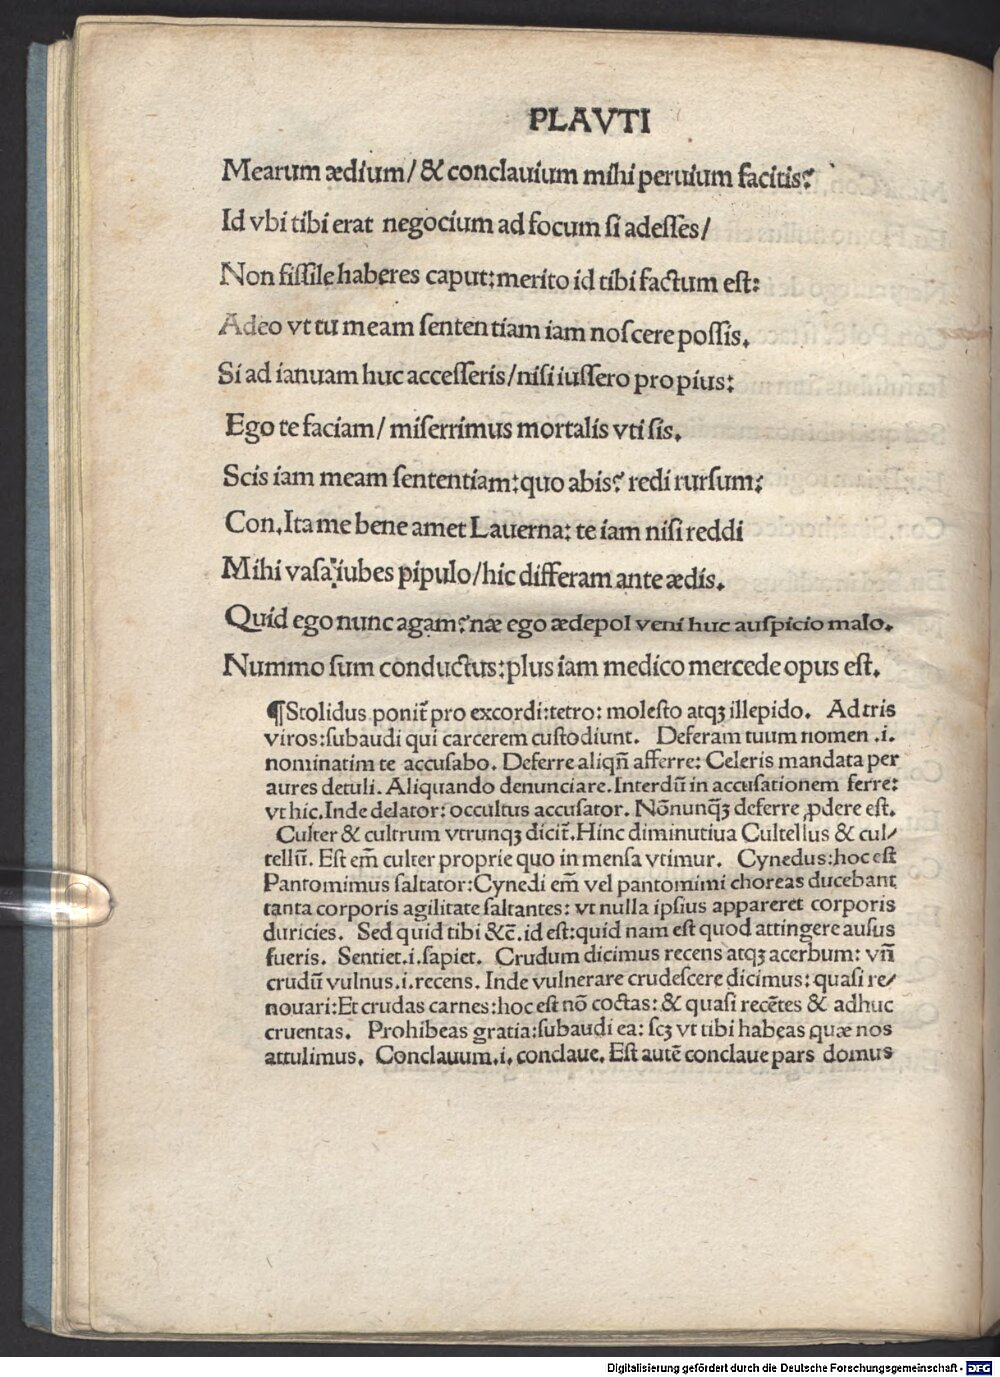 PLAVTI
Mearum ædium/ & conclauium mihi peruium facitis?
Id vbi tibi erat negocium ad focum ſi adeſſes/
Non fiſſile haberes caput: merito id tibi factum eſt:
Adeo vt tu meam ſententiam iam noſcere poſſis.
Si ad ianuam huc acceſſeris/ niſi iuſſero propius:
Ego te faciam/ miſerrimus mortalis vti ſis.
Scis iam meam ſententiam: quo abis? redi rurſum:
Con. Ita me bene amet Lauerna: te iam niſi reddi
Mihi vaſa iubes pipulo/ hic differam ante ædis.
Quid ego nunc agam? næ ego ædepol veni huc auſpicio malo.
Nummo ſum conductus: plus iam medico mercede opus eſt.
¶Stolidus ponit᷑ pro excordi: tetro: moleſto atqꝫ illepido. Ad tris
viros: ſubaudi qui carcerem cuſtodiunt. Deferam tuum nomen .i.
nominatim te accuſabo. Deferre aliqñ afferre: Celeris mandata per
aures detuli. Aliquando denunciare. Interdū in accuſationem ferre:
vt hic. Inde delator: occultus accuſator. Nōnunqꝫ deferre ꝓdere eſt.
Culter & cultrum vtrunqꝫ dicit᷑. Hinc diminutiua Cultellus & cul⸗
tellū. Eſt em̄ culter proprie quo in menſa vtimur. Cynedus: hoc eſt
Pantomimus ſaltator: Cynedi em̄ vel pantomimi choreas ducebant
tanta corporis agilitate ſaltantes: vt nulla ipſius appareret corporis
duricies. Sed quid tibi &c̄. id eſt: quid nam eſt quod attingere auſus
fueris. Sentiet .i. ſapiet. Crudum dicimus recens atqꝫ acerbum: vñ
crudū vulnus .i. recens. Inde vulnerare crudeſcere dicimus: quaſi re⸗
nouari: Et crudas carnes: hoc eſt nō coctas: & quaſi recētes & adhuc
cruentas. Prohibeas gratia: ſubaudi ea: ſcꝫ vt tibi habeas quæ nos
attulimus. Conclauum .i. conclaue. Eſt autē conclaue pars domus
Digitalisierung gefördert durch die Deutsche Forschungsgemeinschaft - DFG